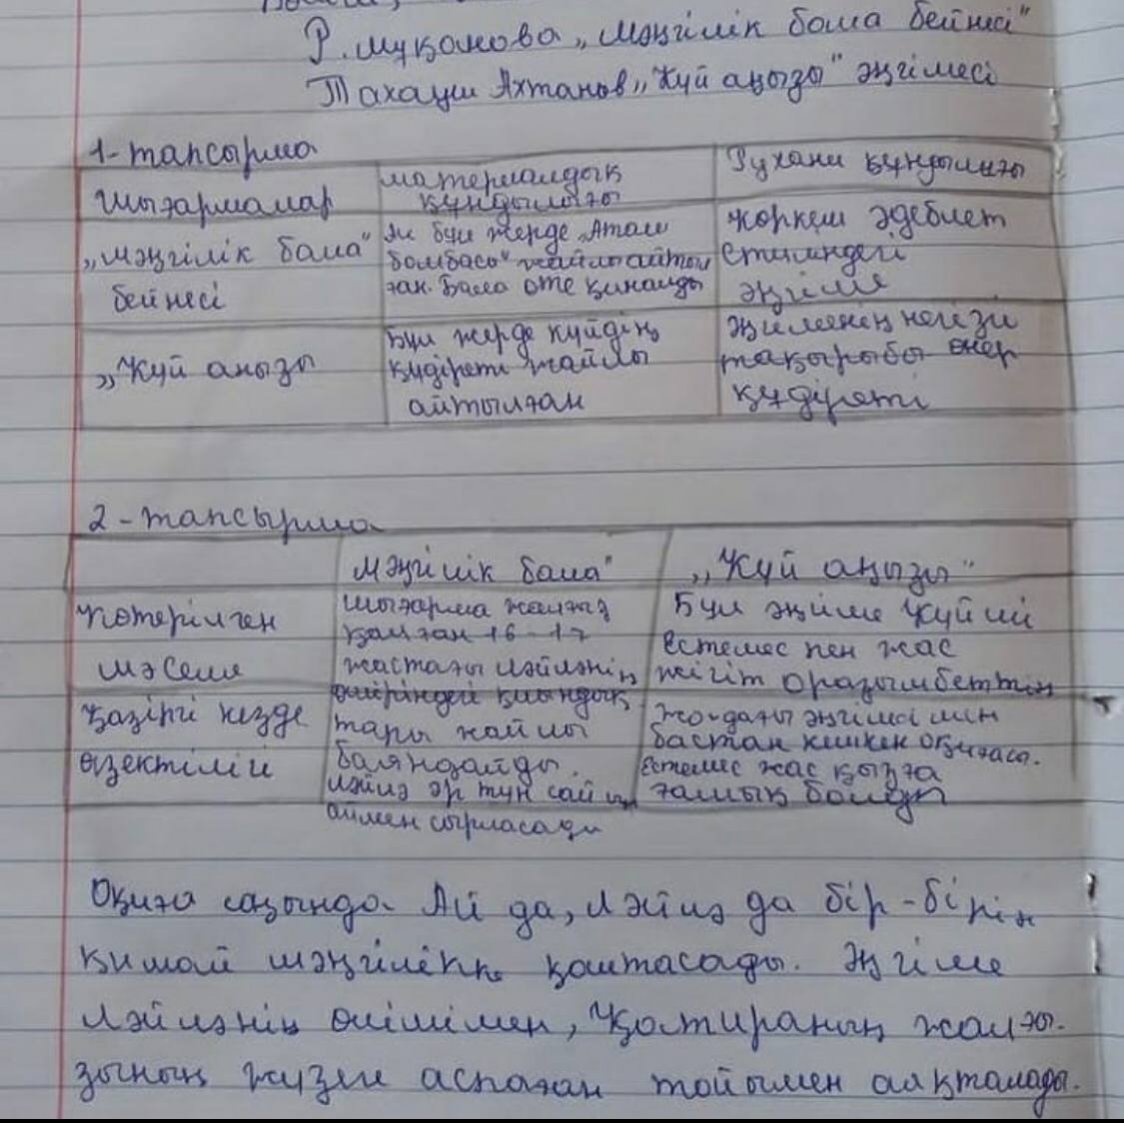 Р. Мұқанова „Мәңгілік бала бейнесі"
Тахауи Ахтанов „Күй аңызы" әңгімесі
1-тапсырма
Шығармалар
материалдық
құндылығы
Рухани құндылығы
„Мәңгілік бала"
бейнесі
бұл жерде „Атом
бомбасы" жайлы айтыл
ған. Бала өте қиналды
Көркем әдебиет
стиліндегі
әңгіме
„Күй аңызы
Бұл жерде күйдің
құдіреті жайлы
айтылған
Әңгіменің негізгі
тақырыбы өнер
құдіреті
2-тапсырма
Мәңгілік бала"
„Күй аңызы"
Көтерілген
мәселе
Шығарма жалғыз
қалған 16-17
жастағы Ләйләнің
өміріндегі қиындық
тары жайлы
баяндайды.
Ләйлә әр түн сайын
аймен сырласады
Бұл әңгіме күйші
Естемес пен жас
жігіт Оразымбеттің
жолдағы әңгімесі мен
бастан кешкен оқиғасы.
Естемес жас қызға
ғашық болады
Қазіргі кезде
өзектілігі
Оқиға соңында Ай да, Ләйлә да бір-бірін
қимай мәңгілікке қоштасады. Әңгіме
Ләйләнің өлімімен, Қатираның жалғы-
зының жүзге аспаған тойымен аяқталады.